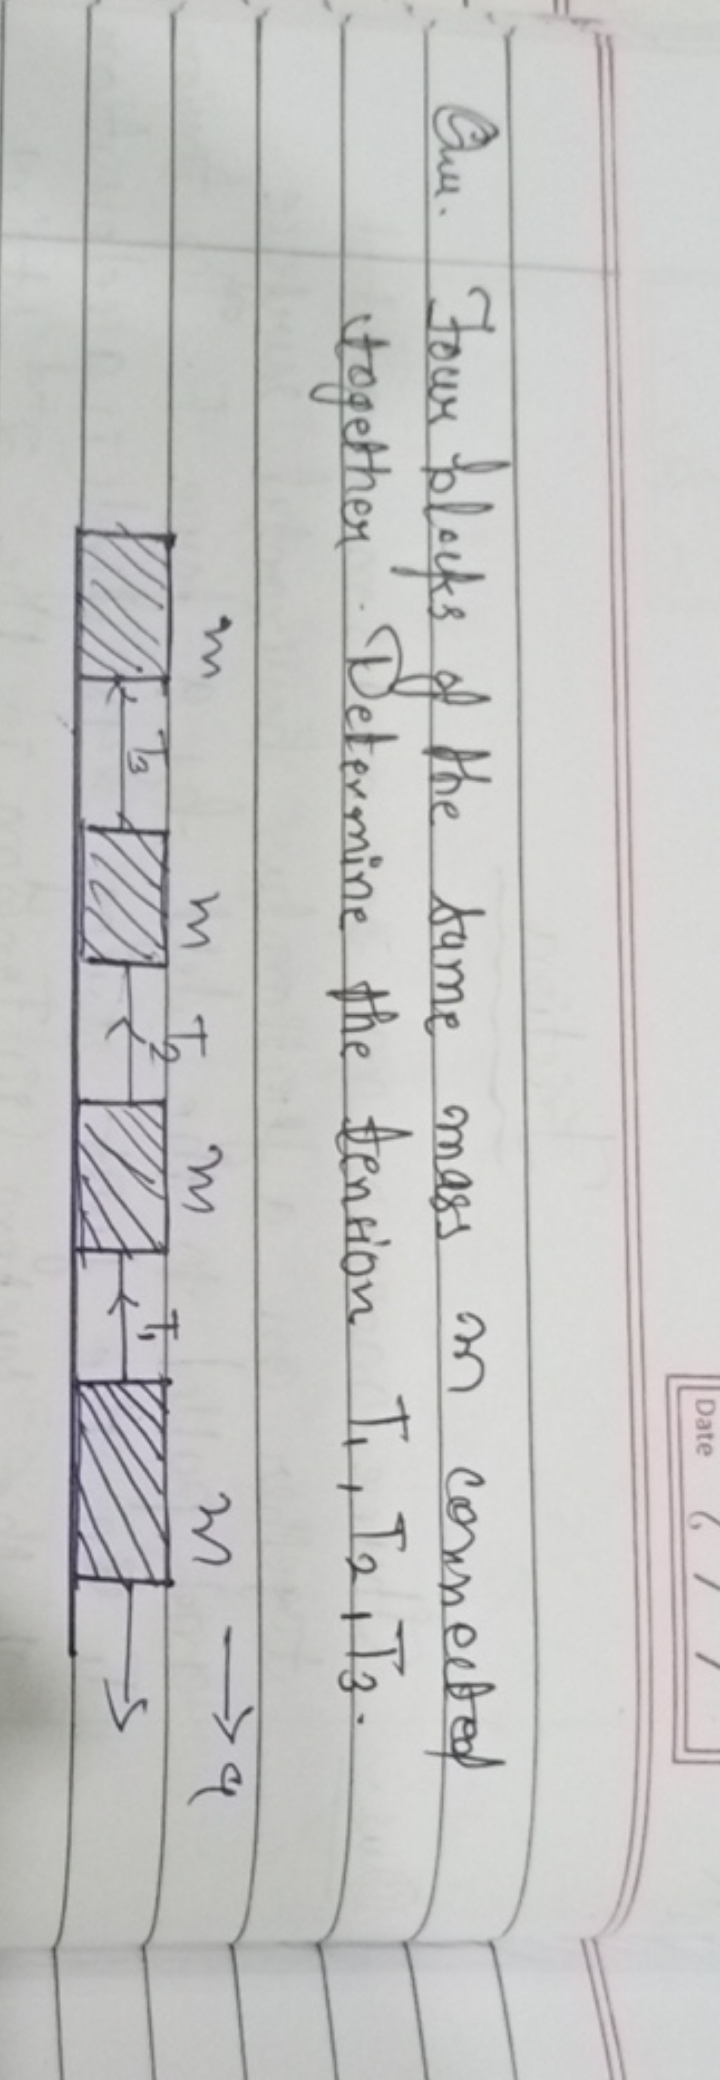 Date 6/ /
Que. Four blocks of the same mass m connected
together. Determine the tension T1, T2, T3.
→ a
m m m m
T3 T2 T1